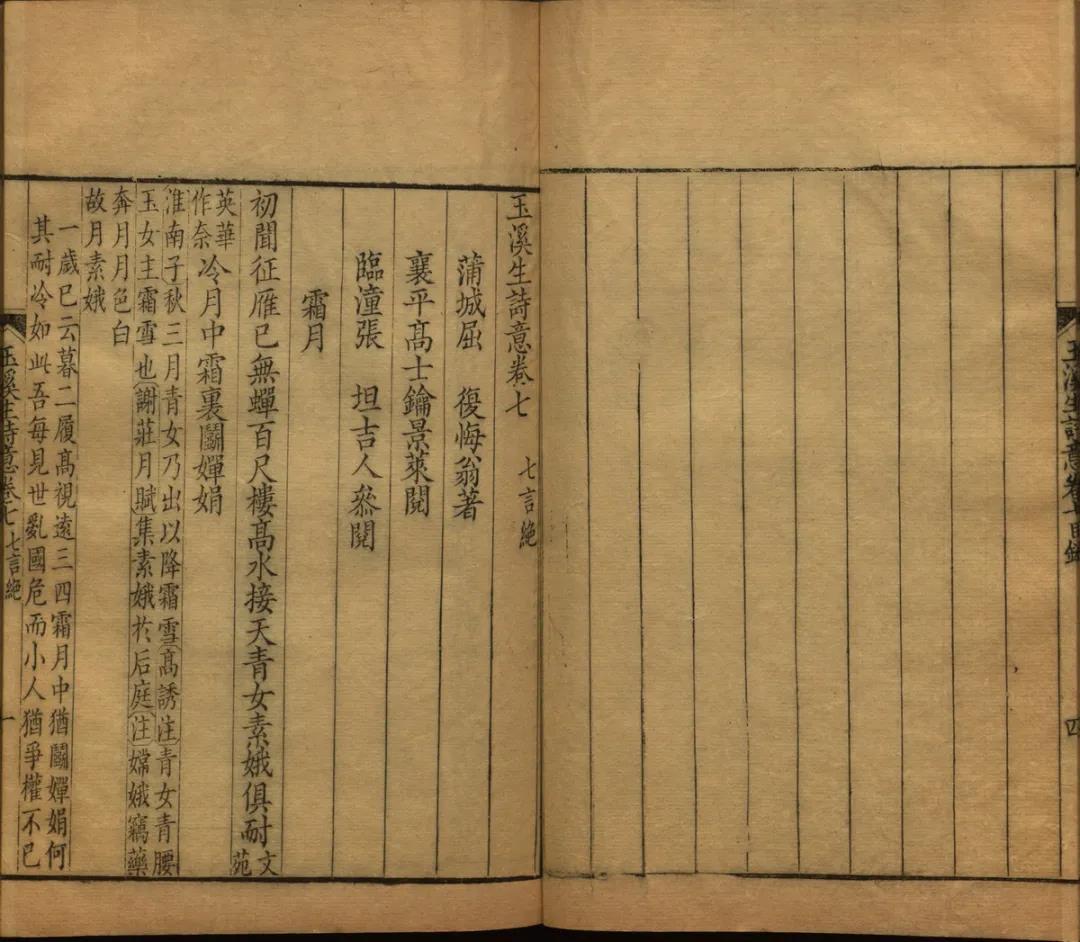 玉溪生詩意卷七目錄
四
玉溪生詩意卷七 七言絶
蒲城屈 復悔翁著
襄平高士鑰景萊閱
臨潼張 坦吉人叅閱
霜月
初聞征雁已無蟬百尺樓高水接天青女素娥俱耐文苑
英華作奈冷月中霜裏鬬嬋娟
淮南子秋三月青女乃出以降霜雪高誘注青女青腰
玉女主霜雪也謝莊月賦集素娥於后庭注嫦娥竊藥
奔月月色白
故月素娥
一歲已云暮二履高視遠三四霜月中猶鬬嬋娟何
其耐冷如此吾每見世亂國危而小人猶爭權不已
玉溪生詩意卷七 七言絶
一